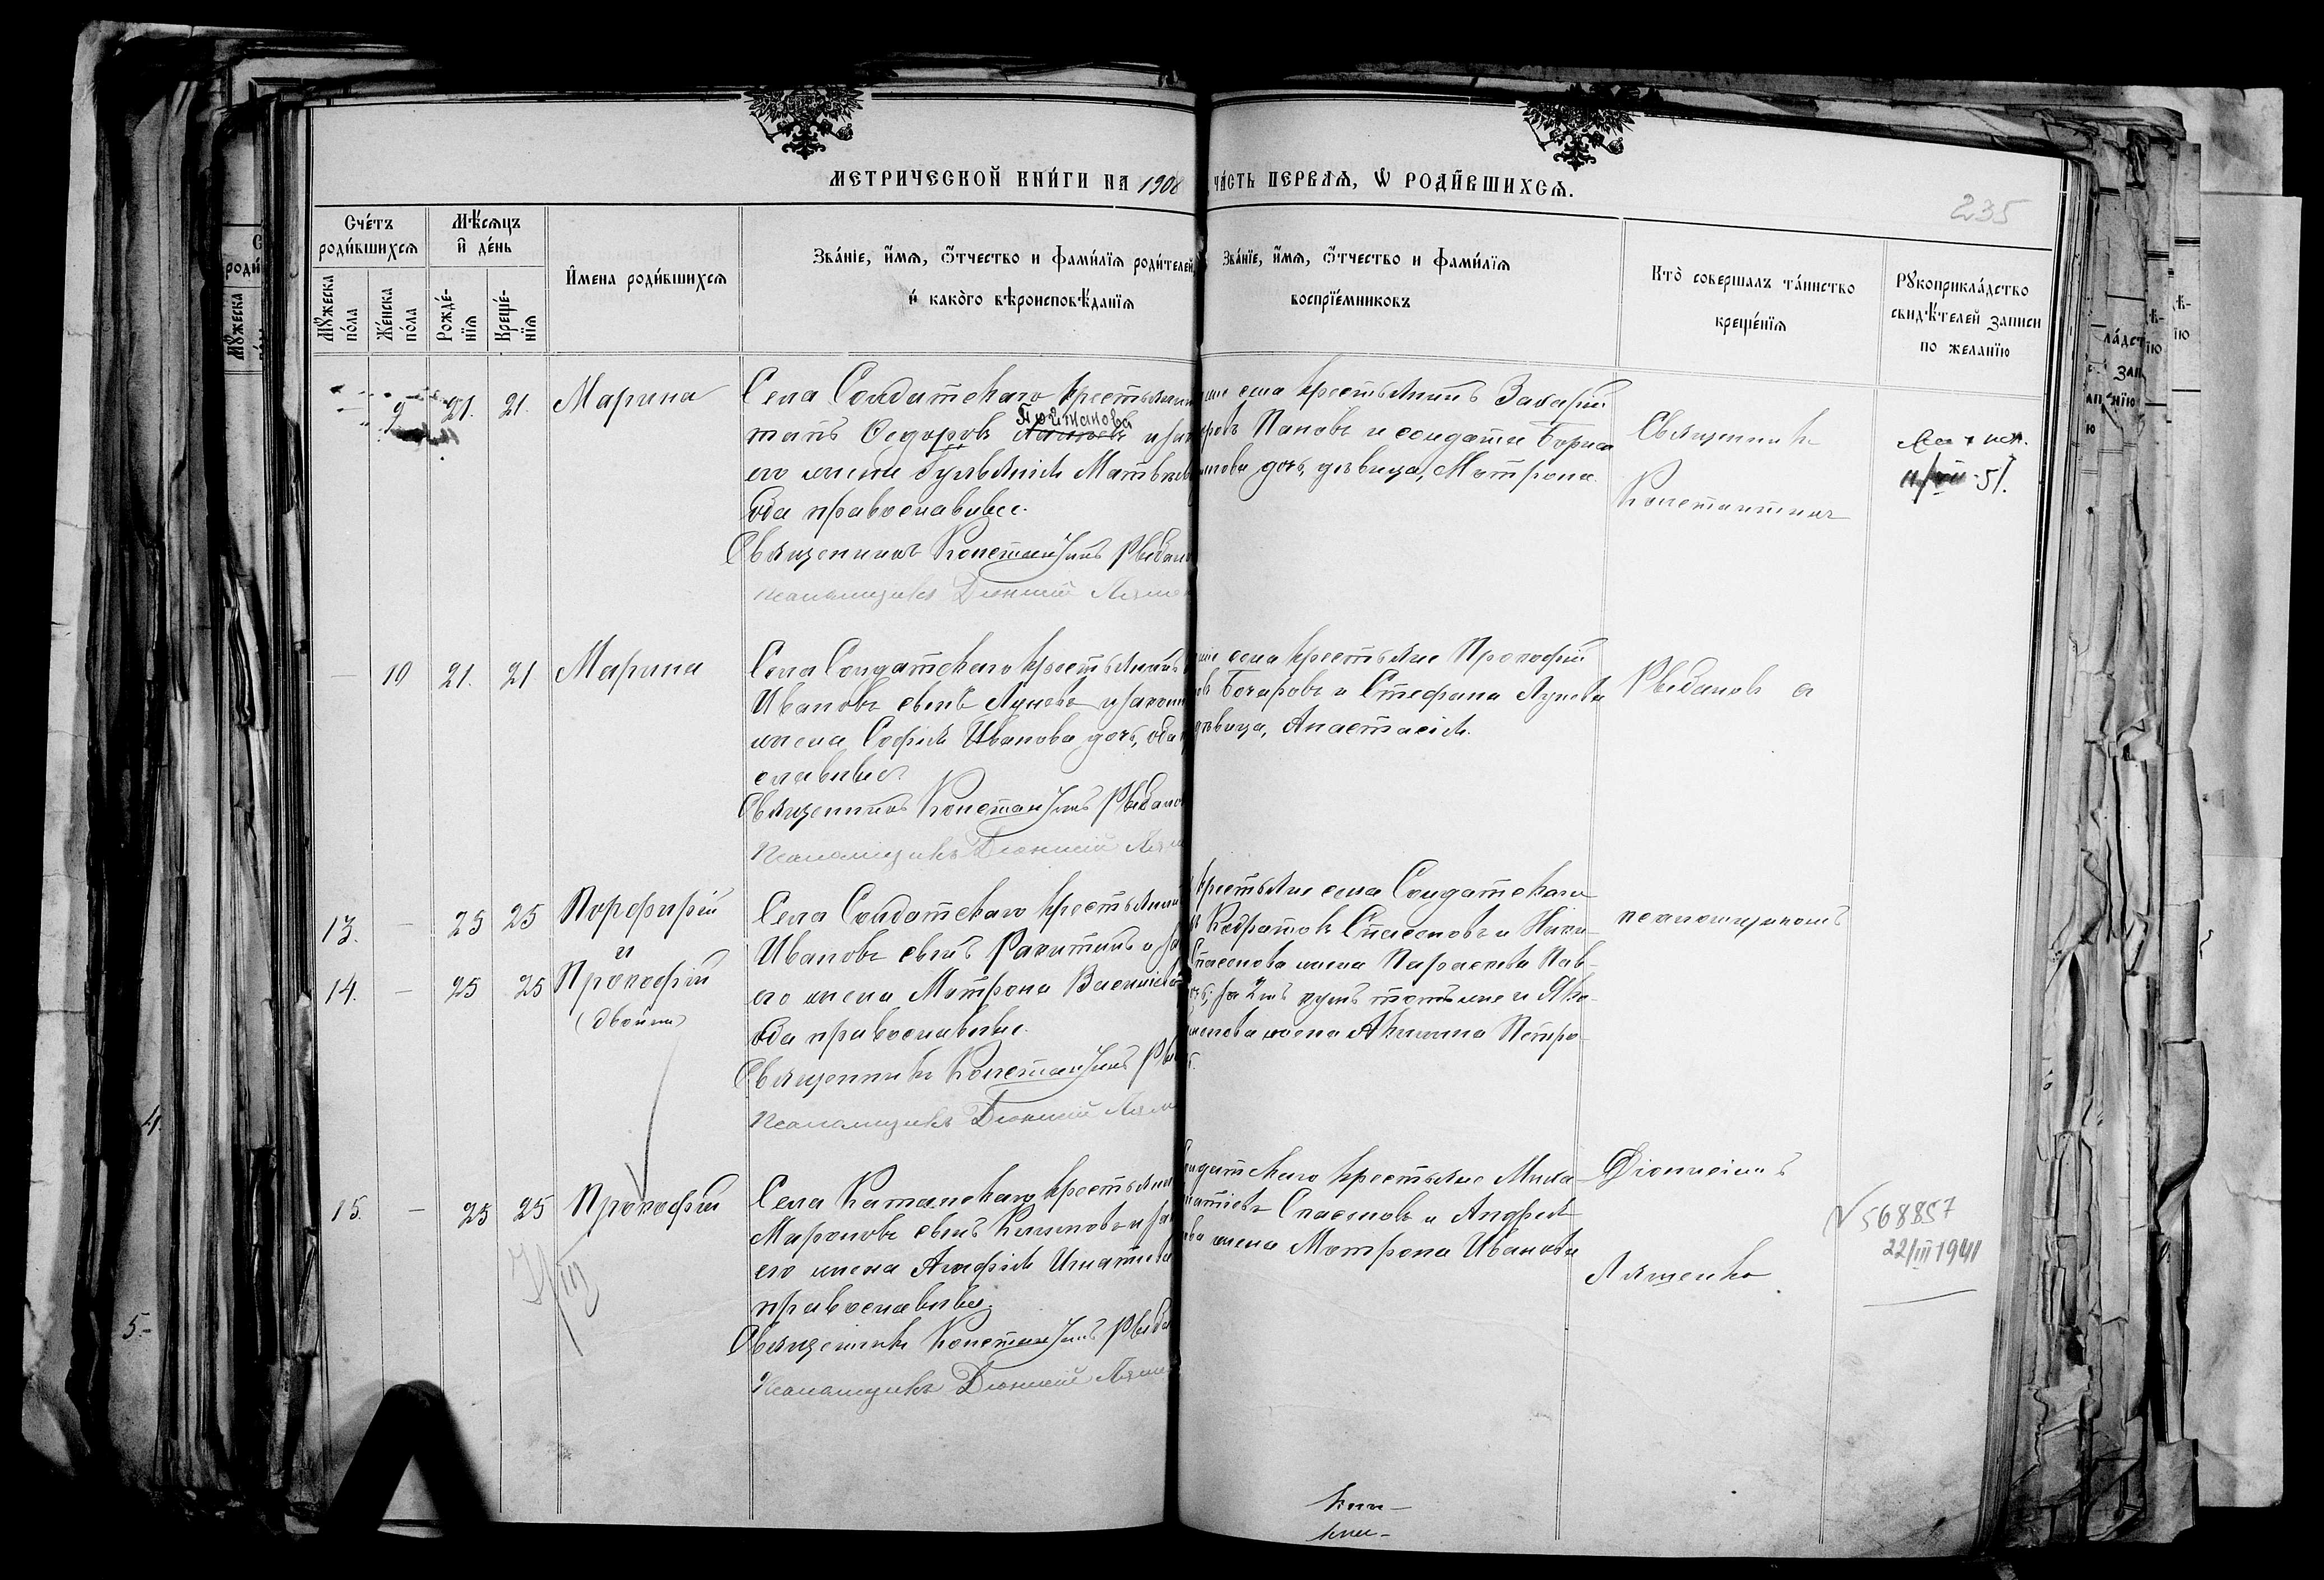 МЕТРИЧЕСКОЙ КНИ́ГИ НА 1908 ЧА́СТЬ ПЕРВАѦ, Ѡ РОДИ́ВШИХСѦ.
235
Сче́тъ роди́вшихсѧ
Мѣ́сѧцъ и҆ де́нь
Мꙋ́жеска по́ла
Же́нска по́ла
Рожде́-нїѧ
Креще́-нїѧ
И҆мена роди́вшихсѧ
Зва́нїе, и҆́мѧ, ѻ҆́тчество и фами́лїѧ роди́телей,
и҆ како́го вѣроисповѣ́данїѧ
Зва́нїе, и҆́мѧ, ѻ҆́тчество и фами́лїѧ
воспрїе́мниковъ
Кто̀ соверша́лъ та́инство
креще́нїѧ
Рꙋкоприкла́дство
свидѣ́телей записи
по желанїю
9 21. 21. Марина
Села Солдатскаго крестьянин
танъ Федоровъ Пойманова
его жена Гулянія Матвѣев
оба православные.
Священникъ Константинъ Рыбанов
псаломщикъ Діонисій Ляшен
села крестьянинъ Захарій
Пановъ и солдатки Бориса
дочь, дѣвица, Матрона.
Священникъ
Константинъ
51.
10 21. 21 Марина
Села Солдатскаго крестьянинъ
Ивановъ сынъ Луневъ и закон
жена Софія Иванова дочь, оба
славные
Священникъ Константинъ Рыбанов
Псаломщикъ Діонисій Ляш
села крестьяне Прокофій
Бочаровъ и Стефана Лунева
дѣвица, Анастасія.
Рыбановъ с
13. – 25 25 Порфирій
и
14. – 25 25 Прокофій
(двойни)
Села Солдатскаго крестьянин
Ивановъ сынъ Ракитинъ и за
его жена Матрона Василіева
оба православные.
Священникъ Константинъ Рыб
псаломщикъ Діонисій Ляш
крестьяне села Солдатскаго
Кодратовъ Спасеновъ и Ники-
Спасенова жена Параскева Пав-
за 2мъ кумъ тотъ же и Яко-
жена Акилина Петро-
псаломщикомъ
15. – 25 25 Прокофій
Села Катанскаго крестьянин
Мироновъ сынъ Климовъ и за
его жена Агафія Игнатьева
православные.
Священникъ Константинъ Рыба
Псаломщикъ Діонисій Ляш
Солдатскаго крестьяне Миха-
Спасеновъ и Андрея
жена Матрона Иванова
Діонисіемъ
Ляшенко.
V 568857
22/III 1941